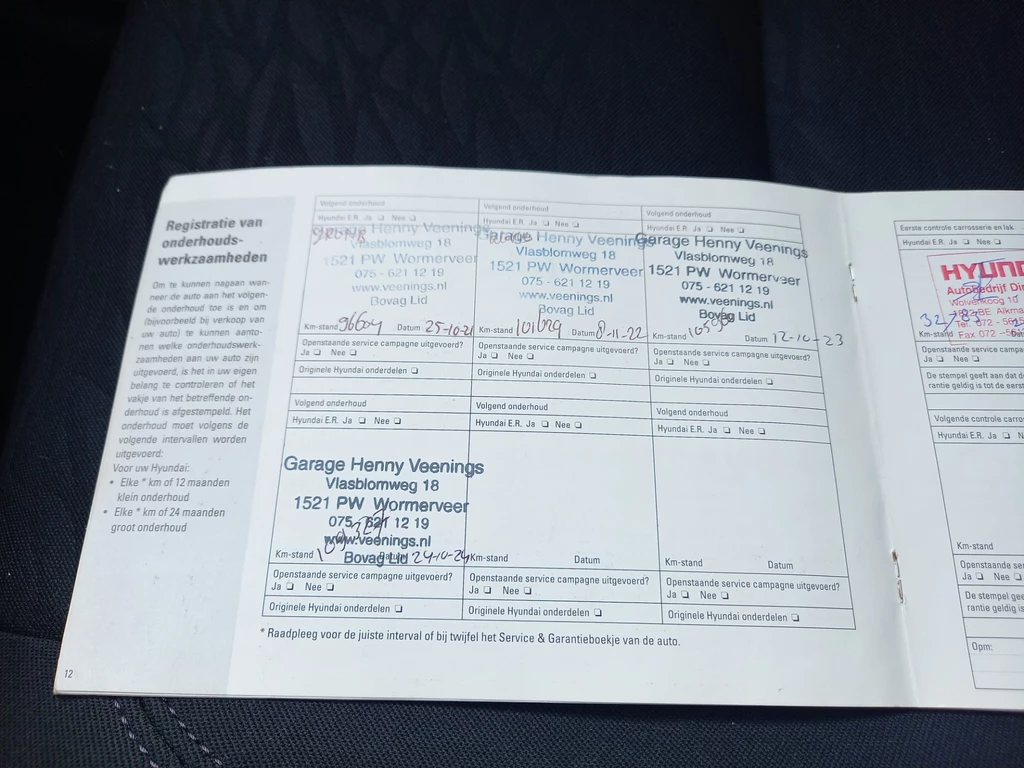 Registratie van
onderhouds-
werkzaamheden
Om te kunnen nagaan wan-
neer de auto aan het volgen-
de onderhoud toe is en om
(bijvoorbeeld bij verkoop van
uw auto) te kunnen aanto-
nen welke onderhoudswerk-
zaamheden aan uw auto zijn
uitgevoerd, is het in uw eigen
belang te controleren of het
vakje van het betreffende on-
derhoud is afgestempeld. Het
onderhoud moet volgens de
volgende intervallen worden
uitgevoerd:
Voor uw Hyundai:
• Elke * km of 12 maanden
klein onderhoud
• Elke * km of 24 maanden
groot onderhoud
12
Volgend onderhoud
Hyundai E.R. Ja ❏ Nee ❏
Garage Henny Veenings
Vlasblomweg 18
1521 PW Wormerveer
075 - 621 12 19
www.veenings.nl
Bovag Lid
Km-stand Datum 25-10-21
Openstaande service campagne uitgevoerd?
Ja ❏ Nee ❏
Originele Hyundai onderdelen ❏
Volgend onderhoud
Hyundai E.R. Ja ❏ Nee ❏
Garage Henny Veenings
Vlasblomweg 18
1521 PW Wormerveer
075 - 621 12 19
www.veenings.nl
Bovag Lid
Km-stand Datum 8-11-22
Openstaande service campagne uitgevoerd?
Ja ❏ Nee ❏
Originele Hyundai onderdelen ❏
Volgend onderhoud
Hyundai E.R. Ja ❏ Nee ❏
Garage Henny Veenings
Vlasblomweg 18
1521 PW Wormerveer
075 - 621 12 19
www.veenings.nl
Bovag Lid
Km-stand Datum 12-10-23
Openstaande service campagne uitgevoerd?
Ja ❏ Nee ❏
Originele Hyundai onderdelen ❏
Volgend onderhoud
Hyundai E.R. Ja ❏ Nee ❏
Garage Henny Veenings
Vlasblomweg 18
1521 PW Wormerveer
075 - 621 12 19
www.veenings.nl
Bovag Lid
Km-stand 24-10-24
Openstaande service campagne uitgevoerd?
Ja ❏ Nee ❏
Originele Hyundai onderdelen ❏
Volgend onderhoud
Hyundai E.R. Ja ❏ Nee ❏
Km-stand Datum
Openstaande service campagne uitgevoerd?
Ja ❏ Nee ❏
Originele Hyundai onderdelen ❏
Volgend onderhoud
Hyundai E.R. Ja ❏ Nee ❏
Km-stand Datum
Openstaande service campagne uitgevoerd?
Ja ❏ Nee ❏
Originele Hyundai onderdelen ❏
* Raadpleeg voor de juiste interval of bij twijfel het Service & Garantieboekje van de auto.
Eerste controle carrosserie en lak
Hyundai E.R. Ja ❏ Nee ❏
HYUND
Autobedrijf Di
Wolvenkoog 10
BE Alkma
Tel. 072 - 56
Km-stand Fax 072
Openstaande service campa
Ja ❏ Nee ❏
De stempel geeft aan dat d
rantie geldig is tot de eerst
Volgende controle carro
Hyundai E.R. Ja ❏ N
Km-stand
Openstaande se
Ja ❏ Nee
De stempel gee
rantie geldig is
Opm: